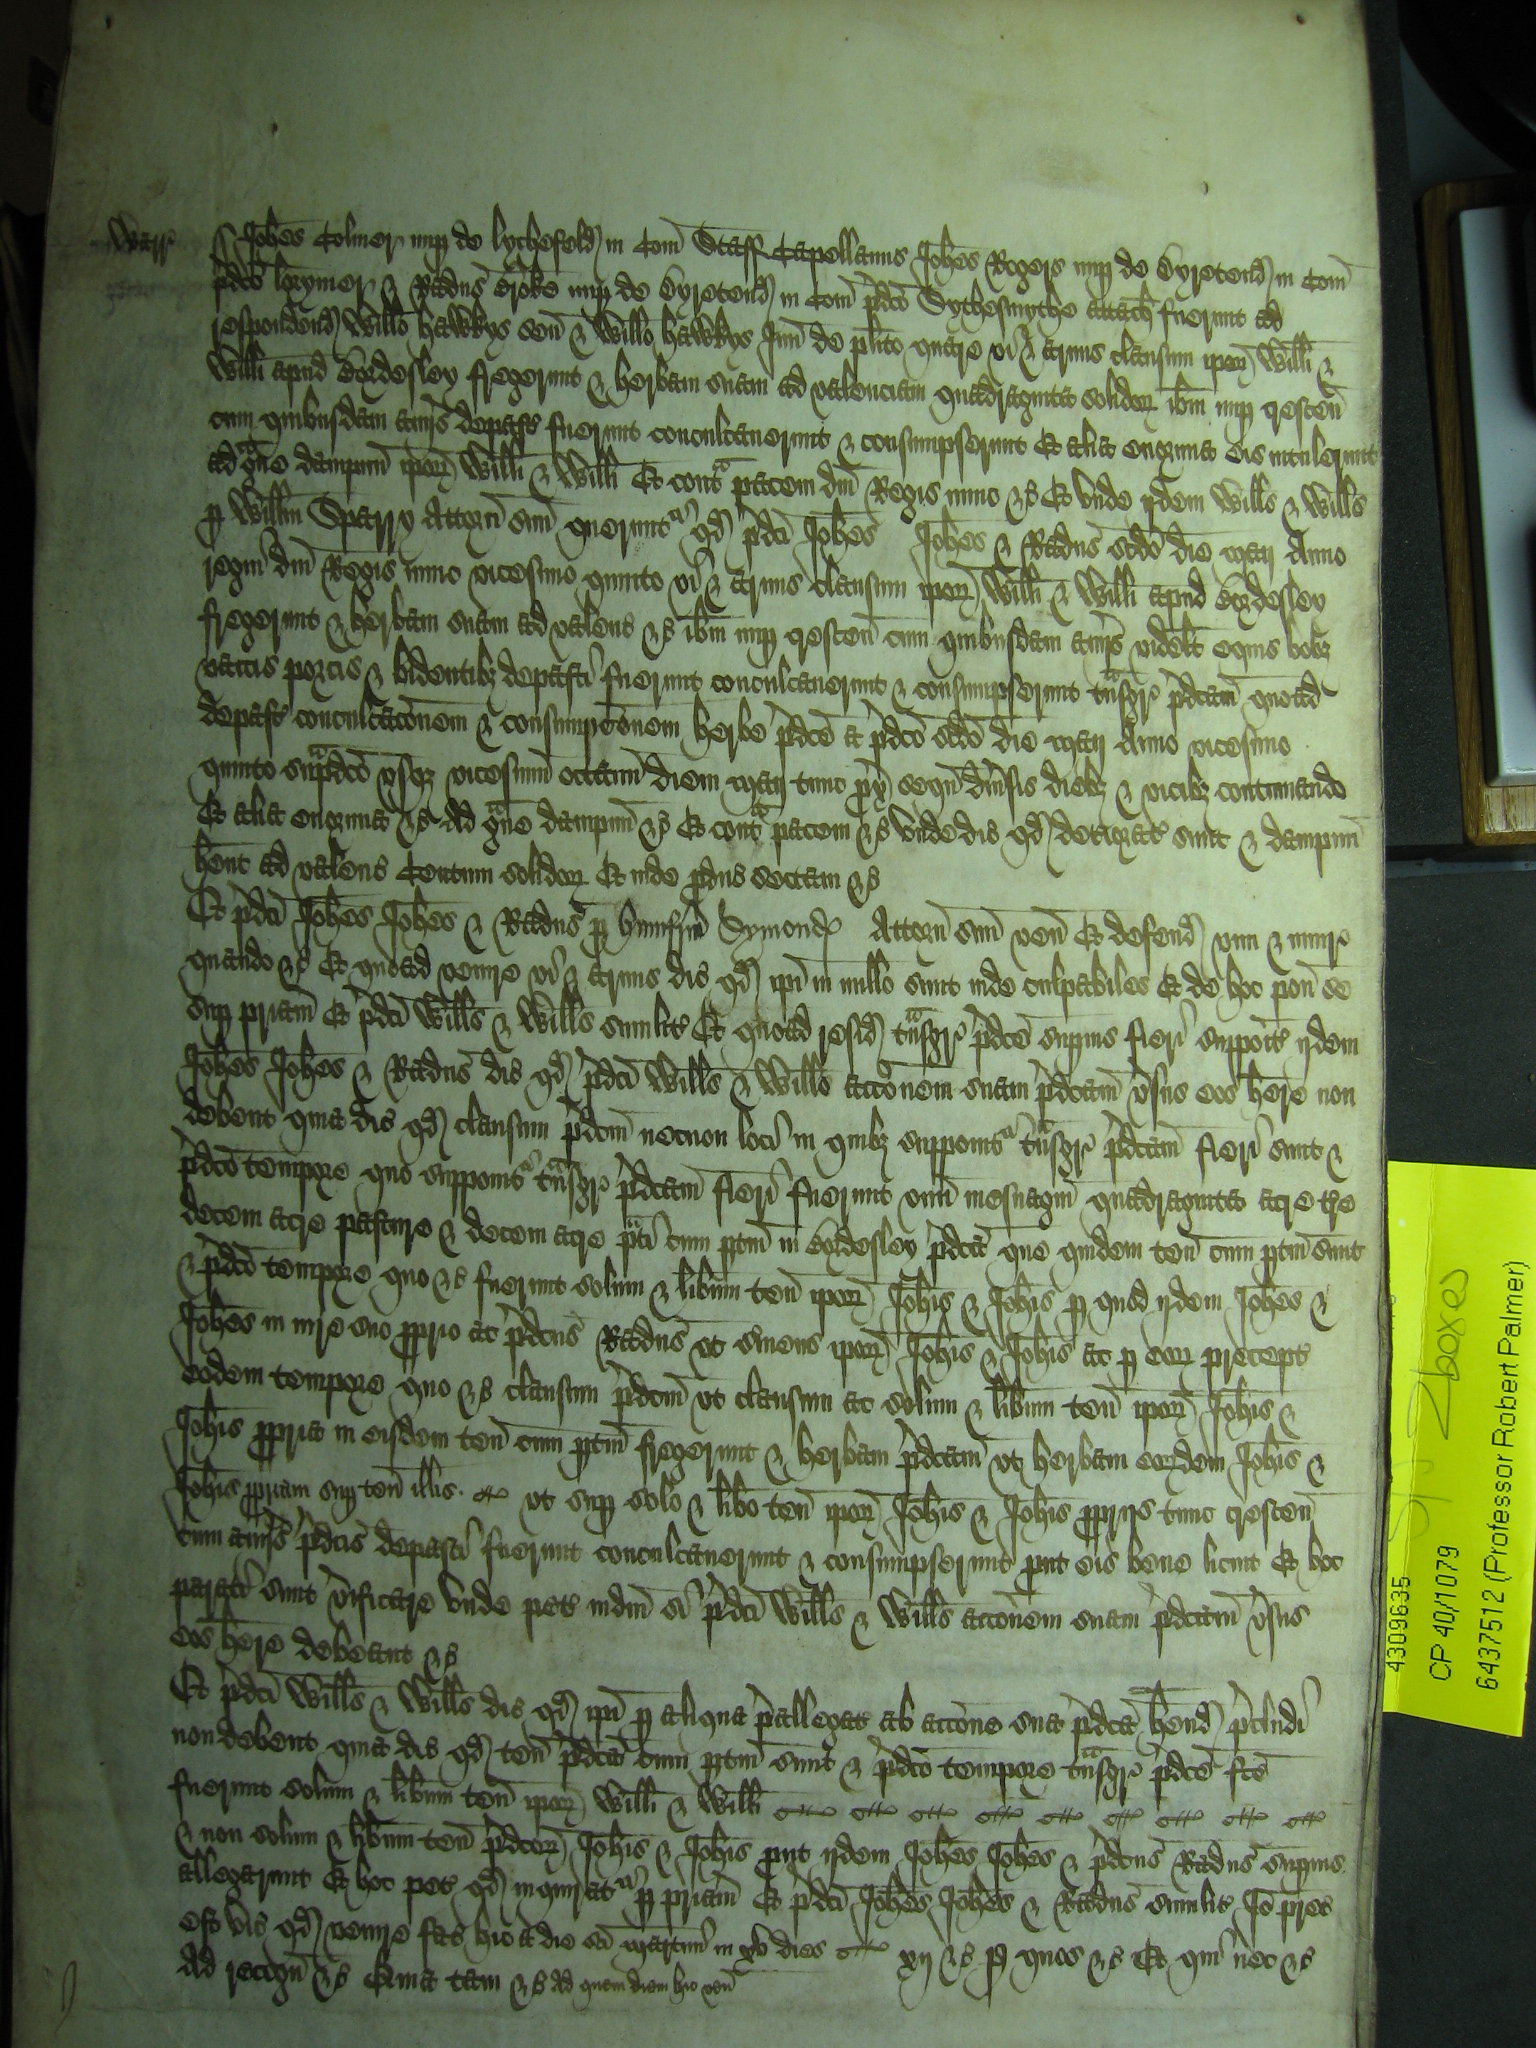 Warr
Joh̄es Colmer nup de lychefeld in Com̄ Staff Capellanus Joh̄es Rogers nup de Byrctend in Com̄
p̄dco lorymer & Rad̄us Broke nup de Byrctend in Com̄ p̄dco Sythesmythe attach fuerunt ad
respondend Will̄o hawkys sen̄ & Will̄o hawkys Jun̄ de pl̄ito quare vi & armis clausum ipor̄ Will̄i &
Will̄i apud Bordesley fregerunt & herbam suam ad valenciam quadraginta solidor ib̄m nup crescen̄
cum quibusdam aīijs depast fuerunt conculcauerunt & consumpserunt Et alia enormia eis intulerunt
ad gūe dampnum ipor Will̄i & Will̄i Et contᵃ pacem dn̄i Regis nunc &c Et vnde ijdem Will̄s & Will̄s
p Will̄m Sparry Attorn̄ suū querunt̄ qd p̄dc̄i Joh̄es Joh̄es & Rad̄us sc̄do die maij Anno
regni dn̄i Regis nunc vicesimo quinto vi & armis clausum ipor Will̄i & Will̄i apud Bordesley
fregerunt & herbam suam ad valenc &c ib̄m nup crescen̄ cum quibusdam aīijs videlt equis bobz
vaccis porcis & bidentibz depasti fuerunt conculcauerunt & consumpserunt tn̄sgr̄ p̄dcam̄ quoad
depast conculcacōnem & consumpcōnem herbe p̄dce a p̄dco sc̄do die maij Anno vicesimo
quinto sup̄dco vsqz vicesimū octauū diem maij tunc prox sequn̄ diūsis diebz & vicibz continuando
Et alia enormia &c Ad gūe dampnū &c Et contᵃ pacem &c vnde dic̄ qd deteriorat sunt & dampnū
hēnt ad valenc Centum solidor Et inde pduc sectam &c
Et p̄dc̄i Joh̄es Joh̄es & Rad̄us p Humfrm̄ Dymond Attorn̄ suū ven̄ Et defend vim & iniur̄
quando &c Et quoad venire vi & armis dic̄ qd ip̄i in nullo sunt inde culpabiles Et de hoc pon̄ se
sup pr̄iam Et p̄dc̄i Will̄s & Will̄s similit̄ Et quoad resid tn̄sgr̄ p̄dce superius fieri supposit̄ ijdem
Joh̄es Joh̄es & Rad̄us dic̄ qd p̄dc̄i Will̄s & Will̄s accōnem suam p̄dcam̄ v̄sus eos h̄ere non
debent quia dic̄ qd clausum p̄dcm̄ necnon loci in quibz supponit̄ tn̄sgr̄ p̄dcam̄ fieri sunt &
p̄dco tempore quo supponit̄ tn̄sgr̄ p̄dcam̄ fieri fuerunt vnū mesuagiū quadraginta acre t̄re
decem acre pasture & decem acre p̄ti cum ptin̄ in Bordesley p̄dca que quidem ten̄ cum ptin̄ sunt
& p̄dco tempore quo &c fuerunt solum & lib̄um ten̄ ipor Joh̄is & Joh̄is p quod ijdem Joh̄es &
Joh̄es in iure suo pprio ac p̄dcus Rad̄us vt s̄uiens ipor Joh̄is & Joh̄is ac p eor precept
eodem tempore quo &c clausum p̄dcm̄ vt clausum ac solum & lib̄um ten̄ ipor Joh̄is &
Joh̄is ppria in eisdem ten̄ cum ptin̄ fregerunt & herbam p̄dcam̄ vt herbam eordem Joh̄is &
Joh̄is ppriam sup ten̄ illis vt sup solo & lib̄o ten̄ ipor Joh̄is & Joh̄is pprijs tunc crescen̄
cum aīijs p̄dcis depasti fuerunt conculcauerunt & consumpserunt put eis bene licuit Et hoc
parati sunt v̄ificare vnde pet̄ iudm̄ si p̄dc̄i Will̄s & Will̄s accōnem suam p̄dcam̄ v̄sus
eos h̄ere debeant &c
Et p̄dc̄i Will̄s & Will̄s dic̄ qd ip̄i p aliqua p̄allegat ab accōne sua p̄dca h̄end p̄cludi
non debent quia dic̄ qd ten̄ p̄dca cum ptin̄ sunt & p̄dco tempore tn̄sgr̄ p̄dce fc̄e
fuerunt solum & lib̄um ten̄ ipor Will̄i & Will̄i
& non solum & lib̄um ten̄ p̄dcor Joh̄is & Joh̄is put ijdem Joh̄es Joh̄es & p̄dcus Rad̄us superius
allegarunt Et hoc pet̄ qd inquirat̄ p pr̄iam Et p̄dc̄i Joh̄es Joh̄es & Rad̄us similit̄ Jo prec̄
est vic̄ qd venire fac̄ hic a die sc̄i martini in xv dies xij &c p quos &c Et qui nec &c
Ad recogn̄ &c Quia tam &c Ad quem diem hic ven̄
4309635
CP 40/1079
6437512 (Professor Robert Palmer)
2 boxes